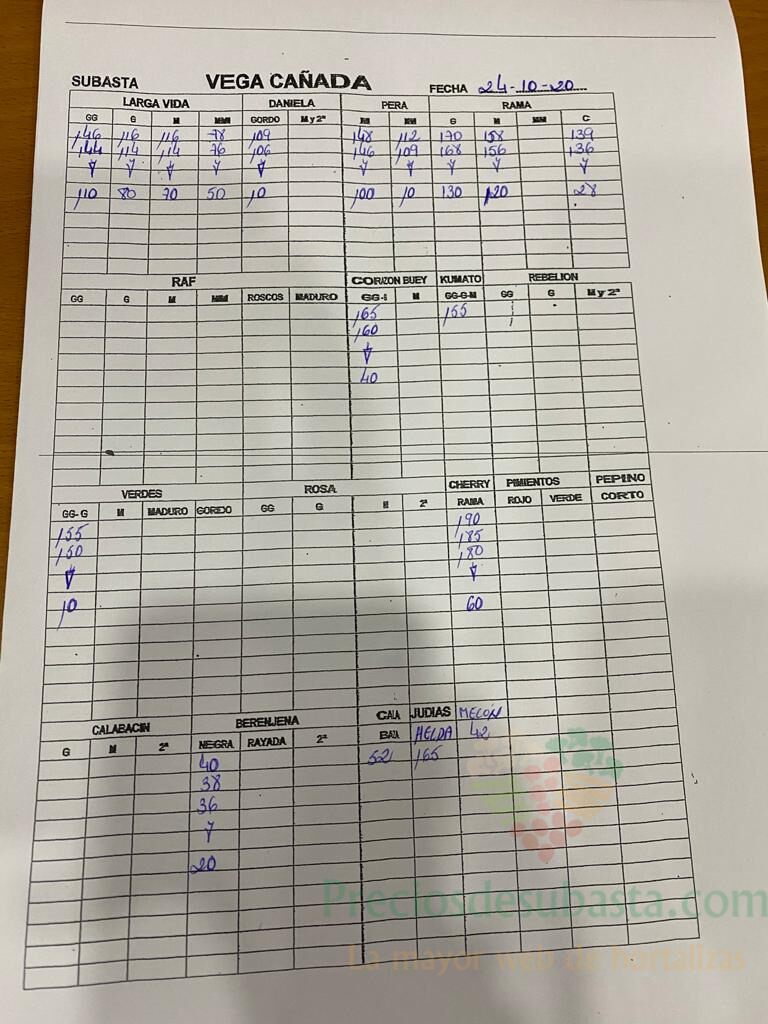 SUBASTA VEGA CAÑADA FECHA 24-10-20
LARGA VIDA DANIELA PERA RAMA
GG G M MM GORDO M y 2ª M MM G M MM C
146 116 116 78 109 148 112 170 158 139
144 114 114 76 106 146 109 168 156 136
110 80 70 50 10 100 10 130 120 28
RAF CORIZON BUEY KUMATO REBELION
GG G M MM ROSCOS MADURO GG-1 M GG-G-M GG G M y 2ª
165 155
160
40
VERDES ROSA CHERRY PIMIENTOS PEPINO
GG-G M MADURO GORDO GG G M 2ª RAMA ROJO VERDE CORTO
155 190
150 185
180
10 60
CALABACIN BERENJENA CAIA JUDIAS MELÓN
G M 2ª NEGRA RAYADA 2ª BAJA HELDA 42
40 52 165
38
36
20
Preciosdesubasta.com
La mayor web de hortalizas